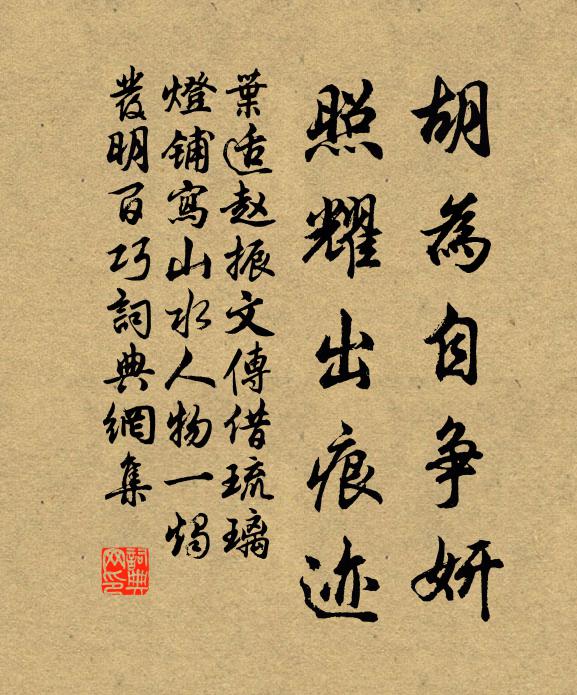 胡為自争妍
照耀出痕迹
葉适赵振文傳借琉璃
燈铺寫山水人物一燭
發明百巧詞典網集
詞典网印